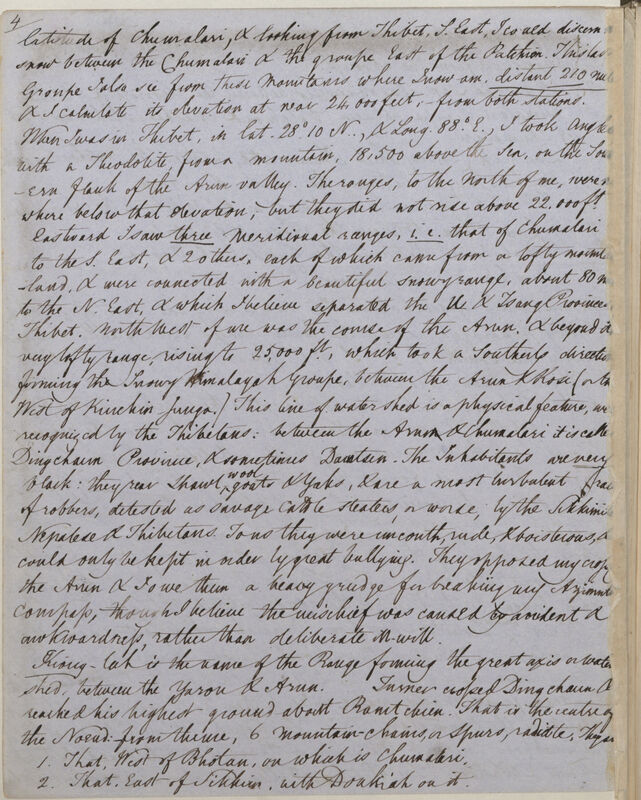 4
latitude of Chumalari, & looking from Thibet, S. East, I could discern
snow between the Chumalari & the groupe East of the Patchien This
Groupe I also see from these Mountains where I now am, distant 210
& I calculate its elevation at near 24,000 feet, - from both stations.
When I was in Thibet, in lat. 28° 10 N., & Long. 88° E., I took angles
with a Theodolite from a mountain, 18,500 above the Sea, on the
ern flank of the Arun valley. The ranges, to the North of me, were
where below that elevation, but they did not rise above 22,000 ft
Eastward I saw three Meridional ranges, i.e. that of Chumalari
to the S. East, & 2 others, each of which came from a lofty
land, & were connected with a beautiful snowy range, about 80
to the N. East, & which I believe separated the U & Tsang
Thibet. North West of me was the course of the Arun, & beyond
very lofty range, rising to 25,000 ft, which took a Southerly
forming the Snowy Himalayah Groupe, between the Arun & Kosi (or
West of Kinchin junga.) This line of water shed is a physical feature,
recognized by the Thibetans: between the Arun & Chumalari it is
Dingcham Province, & sometimes Damtsen. The Inhabitants are very
black: they rear Shawl wool goats & Yaks, & are a most turbulent
of robbers, detested as savage cattle stealers, or worse, by the
Nepalese & Thibetans. To us they were uncouth, rude, & boisterous, &
could only be kept in order by great bullying. They opposed my
the Arun & I owe them a heavy grudge for breaking my
compass, though I believe the mischief was caused by accident &
awkwardness, rather than deliberate ill-will.
Kiong-lah is the name of the Range forming the great axis or water
shed, between the Yarou & Arun. Turner crossed Dingcham &
reached his highest ground about Ramtchien. That is the centre
the Nœud: from thence, 6 mountain-chains or spurs, radiate.
1. That, West of Bhotan, on which is Chumalari.
2. That, East of Sikkim, with Donkiah on it.